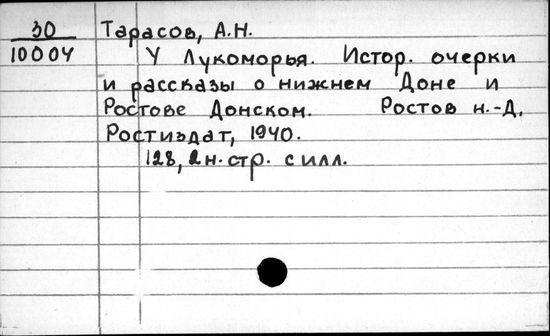 30 Тарасов, А.Н.
10004 У Лукоморья. Истор. очерки
и рассказы о нижнем Доне и
Ростове Донском. Ростов н.-Д,
Ростиздат, 1940.
128, 2 н. стр. с илл.